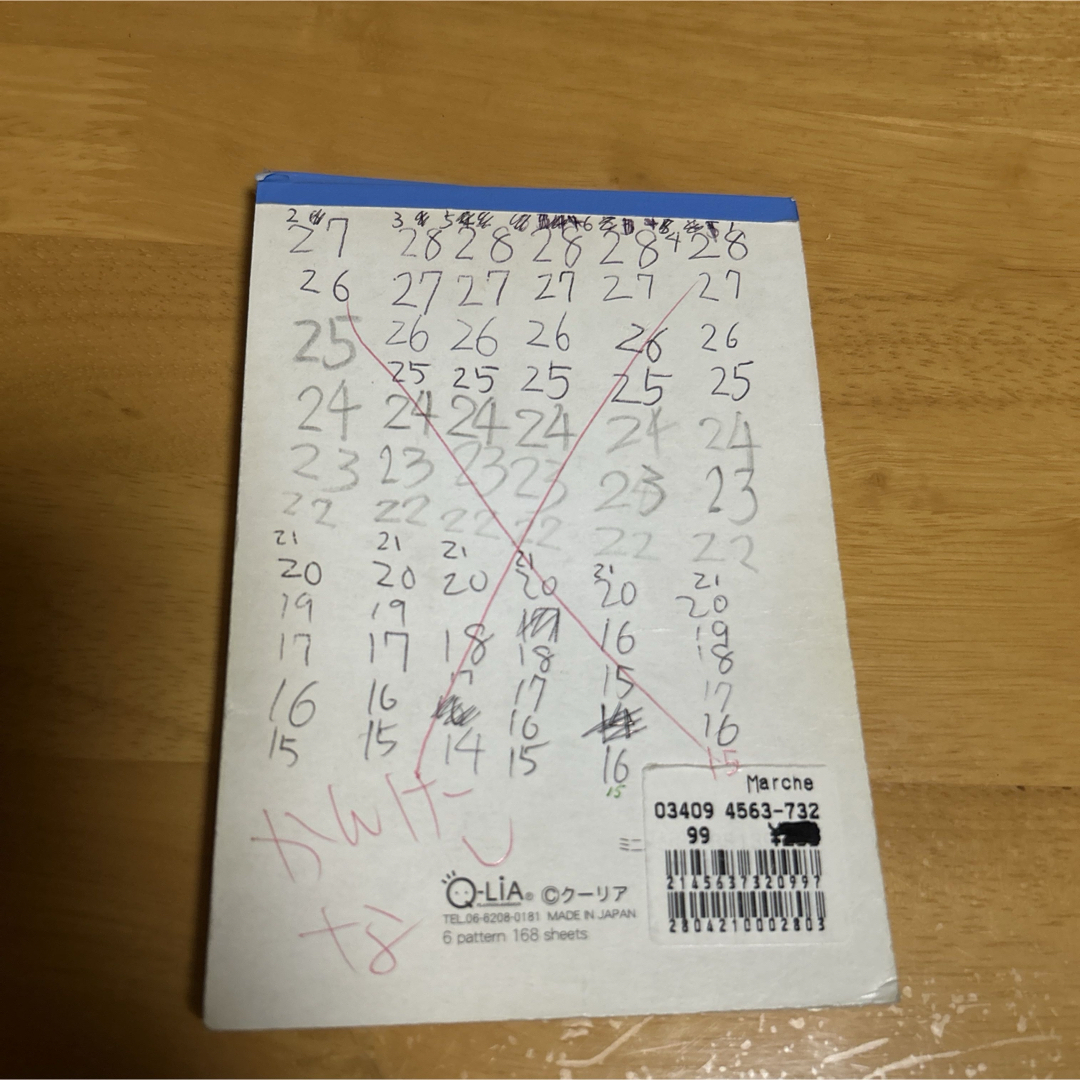 27 28 28 28 28 4 28
26 27 27 27 27 27
25 26 26 26 26 26
25 25 25 25 25
24 24 24 24 24 24
23 23 23 23 23 23
22 22 22 22 22 22
21 21 21 21 21 21
20 20 20 20 20 20
19 19 16 19
17 17 18 18 18
17 15 17
16 16 17 16
16
15 15 14 15 16 15
15
かんけー
し
な
Marche
03409 4563-732
99
2145637320997
2804210002803
Q-LiA® ©クーリア
TEL.06-6208-0181 MADE IN JAPAN
6 pattern 168 sheets